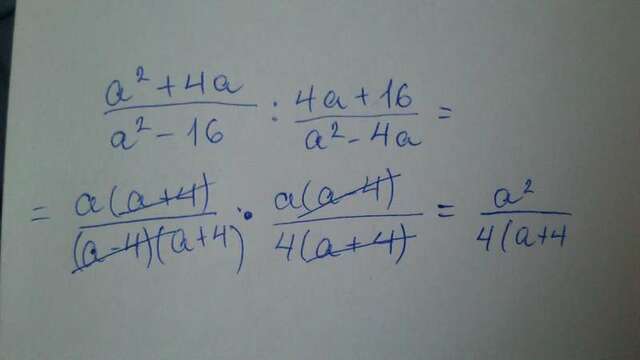 (a² + 4a)/(a² - 16) : (4a + 16)/(a² - 4a) =
= (a(a+4))/((a-4)(a+4)) · (a(a-4))/(4(a+4)) = a²/(4(a+4